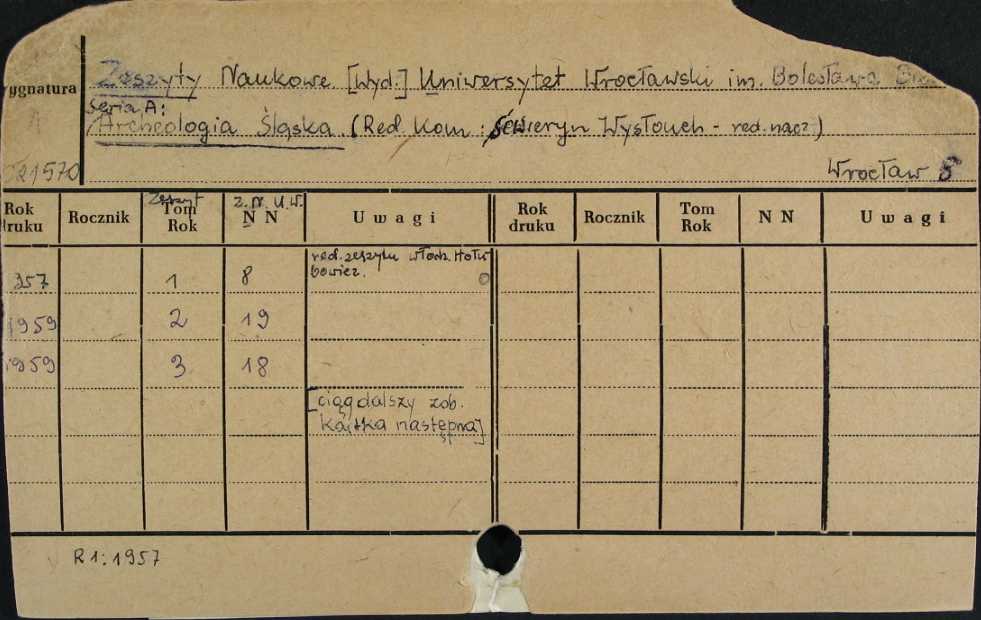 Zeszyty Naukowe [Wyd.] Uniwersytet Wrocławski im. Bolesława
ygnatura
Seria A:
Archeologia Śląska. (Red. Kom: Seweryn Wysłouch - red. nacz.)
1570 Wrocław
Zeszyt z. N. U. W.
Rok druku Rocznik Tom Rok N N Uwagi Rok druku Rocznik Tom Rok N N Uwagi
red. zeszytu Włodz. Hołu
bowicz.
357 1 8
1959 2 19
1959 3 18
[ciąg dalszy zob.
kartka następna]
R 1: 1957